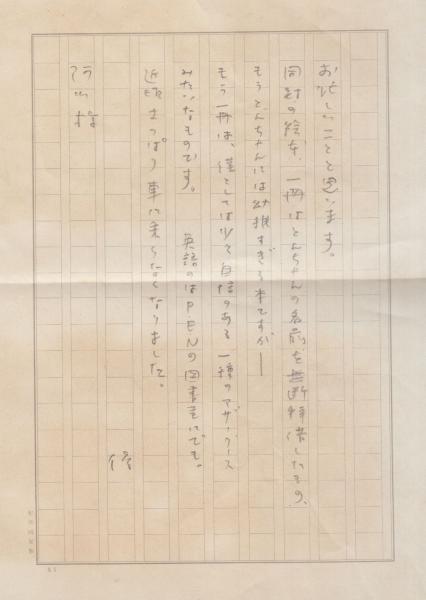 お忙しいことと思います。
同封の絵本、一冊はとんちゃんの名前を無断拝借したもの、
もうとんちゃんには幼稚すぎる本ですが――
もう一冊は、僕としては少々自信のある一種のマザ・グース
みたいなものです。 英語のはP.E.Nの図書室にでも。
近頃さっぱり車に乗らなくなりました。
様